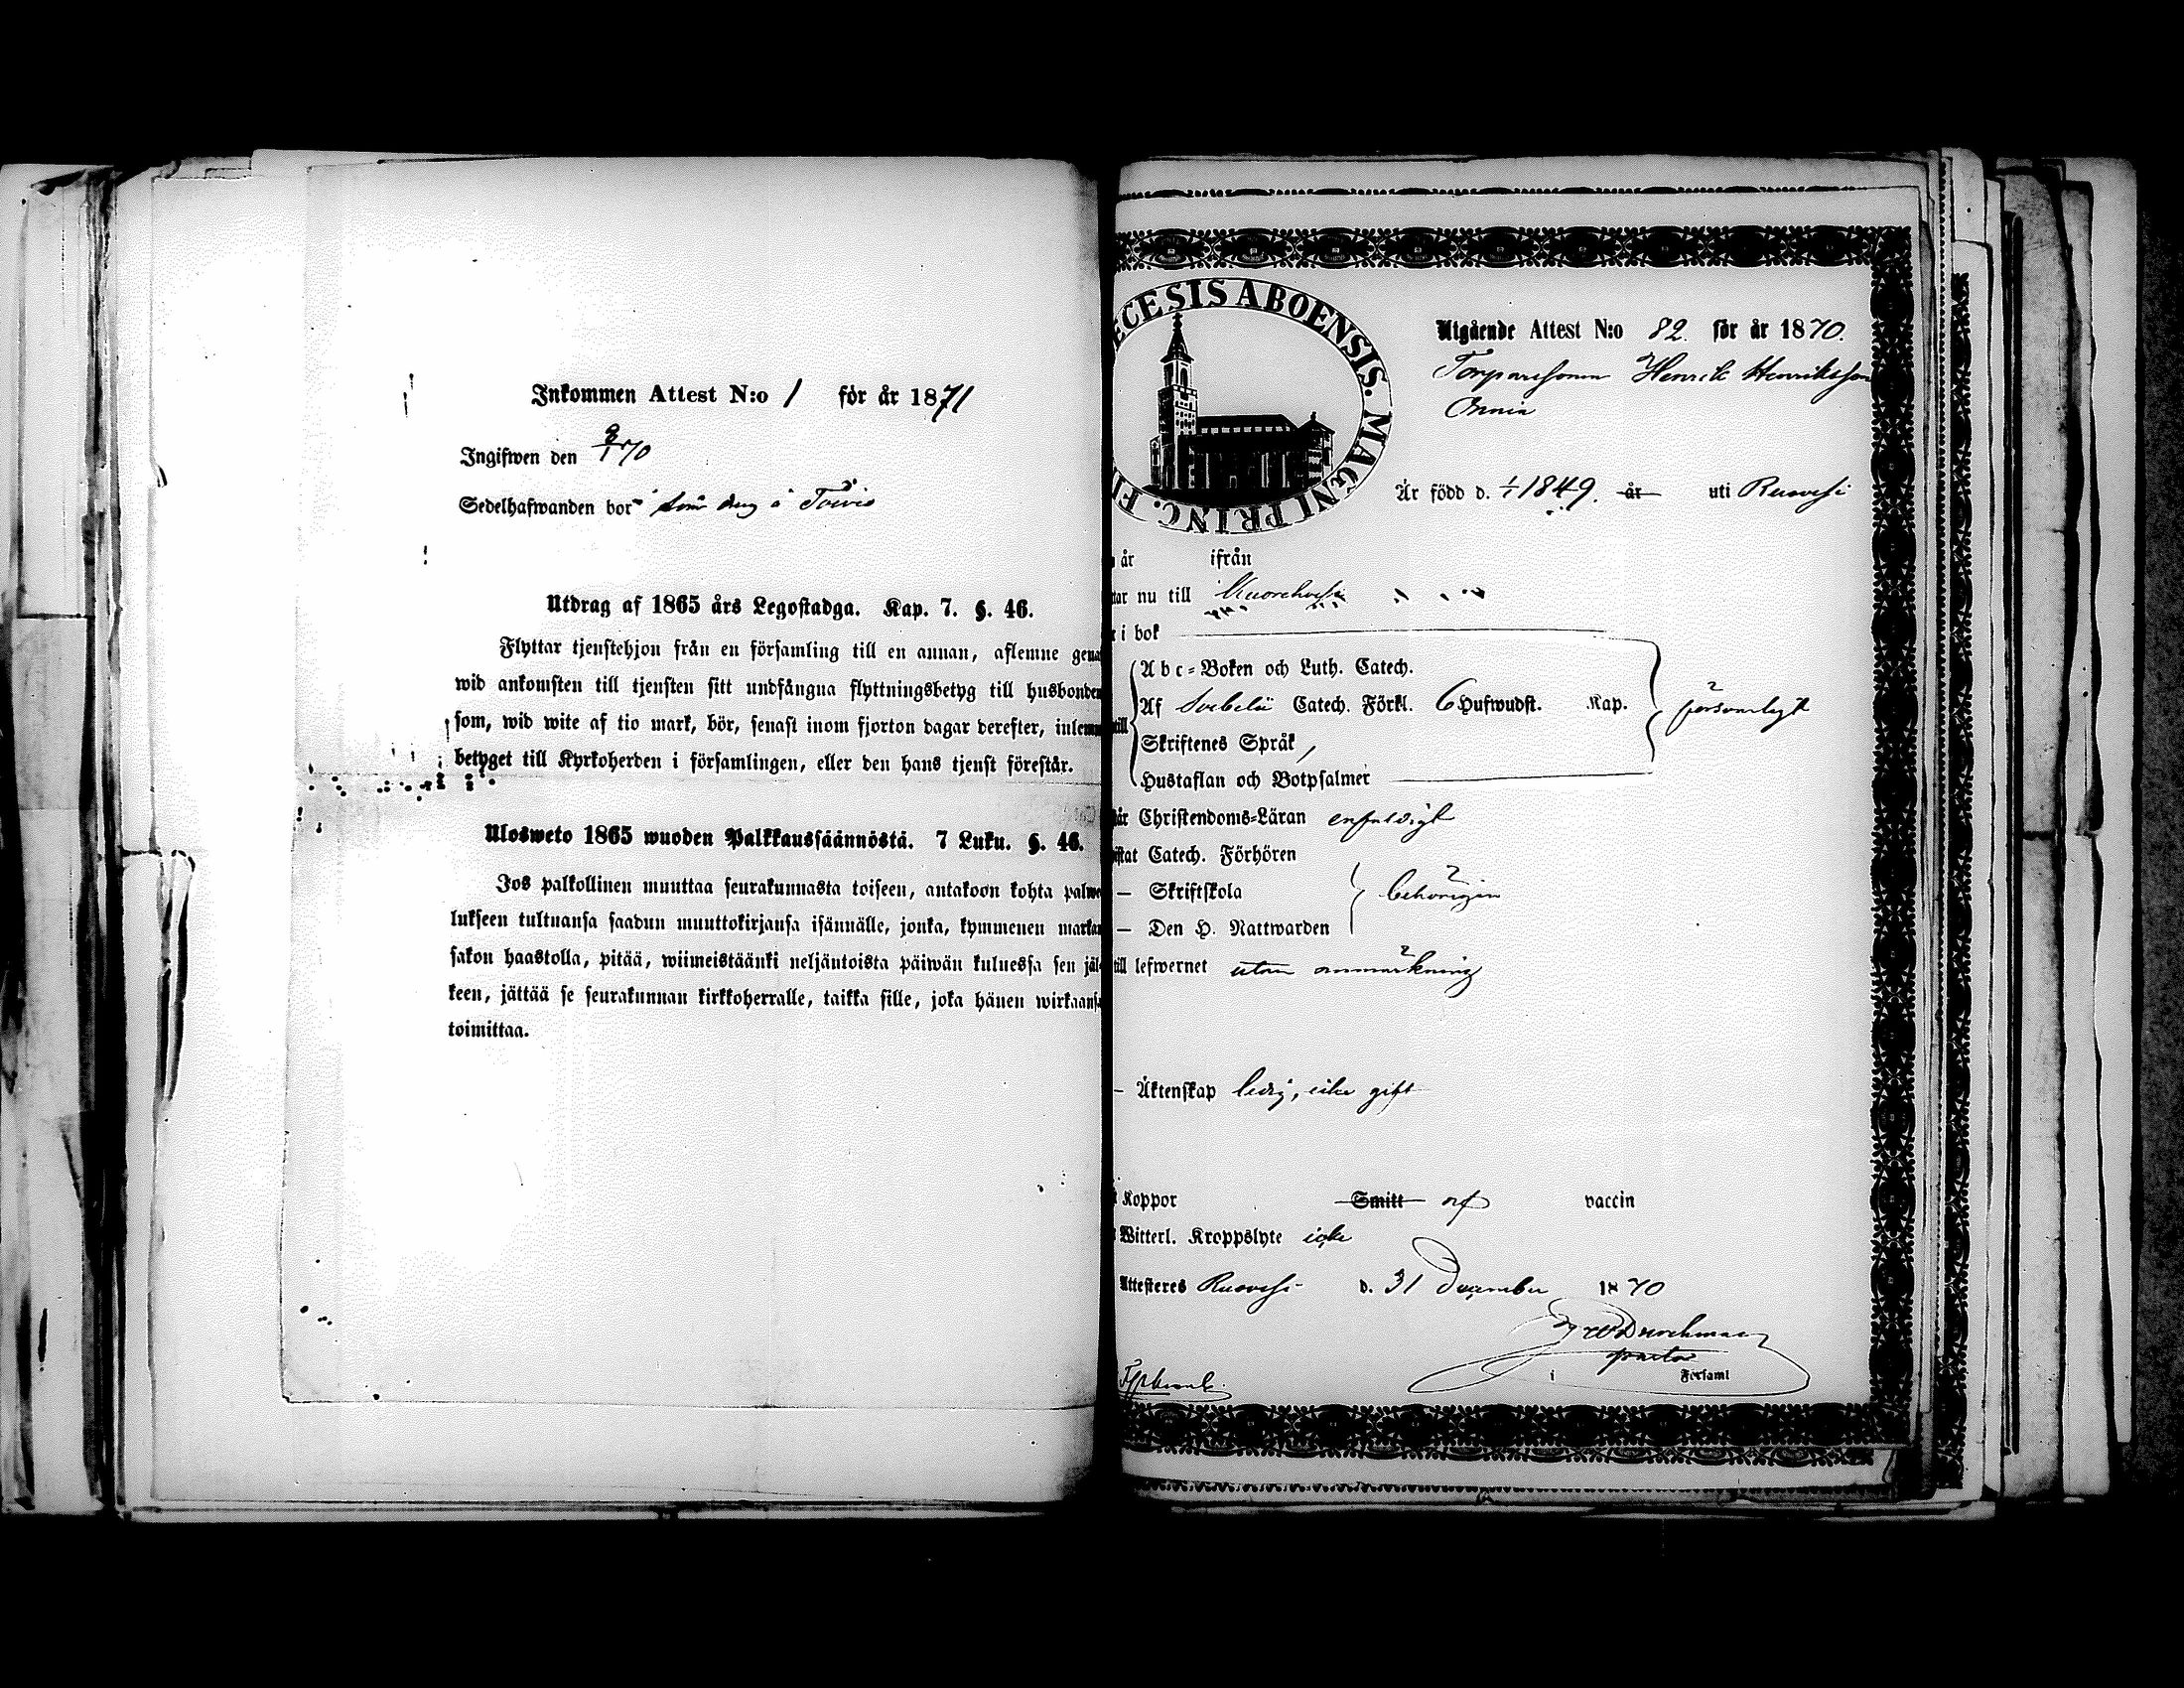 Inkommen Attest N:o 1 för år 1871
Ingifwen den 9/1 70
Sedelhafwanden bor som dräng å Toivio
Utdrag af 1865 års Legostadga. Kap. 7. §. 46.
Flyttar tjenstehjon från en församling till en annan, aflemne gena
wid ankomsten till tjensten sitt undfångna flyttningsbetyg till husbonden
som, wid wite af tio mark, bör, senast inom fjorton dagar derefter, inlemn
betyget till Kyrkoherden i församlingen, eller den hans tjenst förestår.
Ulosweto 1865 wuoden Palkkaussäännöstä. 7 Luku. §. 46.
Jos palkollinen muuttaa seurakunnasta toiseen, antakoon kohta palwe
lukseen tultuansa saadun muuttokirjansa isännälle, jonka, kymmenen markan
sakon haastolla, pitää, wiimeistäänki neljäntoista päiwän kuluessa sen jäl-
keen, jättää se seurakunnan kirkkoherralle, taikka sille, joka hänen wirkaansa
toimittaa.
ECESIS ABOENSIS. MAGNI PRINC. FI
Utgående Attest N:o 82. för år 1870.
Torparesonen Henrik Henriksson
Onnia
Är född d. 1/1 1849. år uti Ruovesi
år ifrån
tar nu till Kuorehvesi
i bok
Abc-Boken och Luth. Catech.
Af Svebelii Catech. Förkl. 6 Hufwudst. Kap. försvarligt
Skriftenes Språk
Hustaflan och Botpsalmer
år Christendoms-Läran enfaldigt
stat Catech. Förhören
— Skriftskola behörigen
— Den H. Nattwarden
till lefwernet utan anmärkning
— Äktenskap ledig, icke gift
Koppor Smitt af vaccin
Witterl. Kroppslyte icke
Attesteres Ruovesi d. 31 December 1870
i Församl